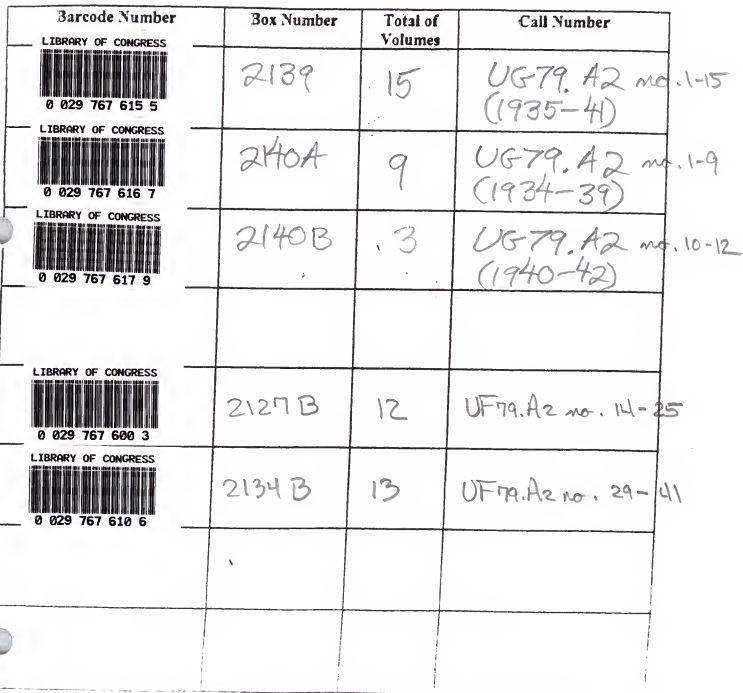 Barcode Number Box Number Total of Volumes Call Number
LIBRARY OF CONGRESS
0 029 767 615 5
2139 15 UG79. A2 no. 1-15
(1935-41)
LIBRARY OF CONGRESS
0 029 767 616 7
2140A 9 UG79. A2 no. 1-9
(1934-39)
LIBRARY OF CONGRESS
0 029 767 617 9
2140B 3 UG79. A2 no. 10-12
(1940-42)
LIBRARY OF CONGRESS
0 029 767 600 3
2127B 12 UF79.A2 no. 14-25
LIBRARY OF CONGRESS
0 029 767 610 6
2134B 13 UF79.A2 no. 29-41